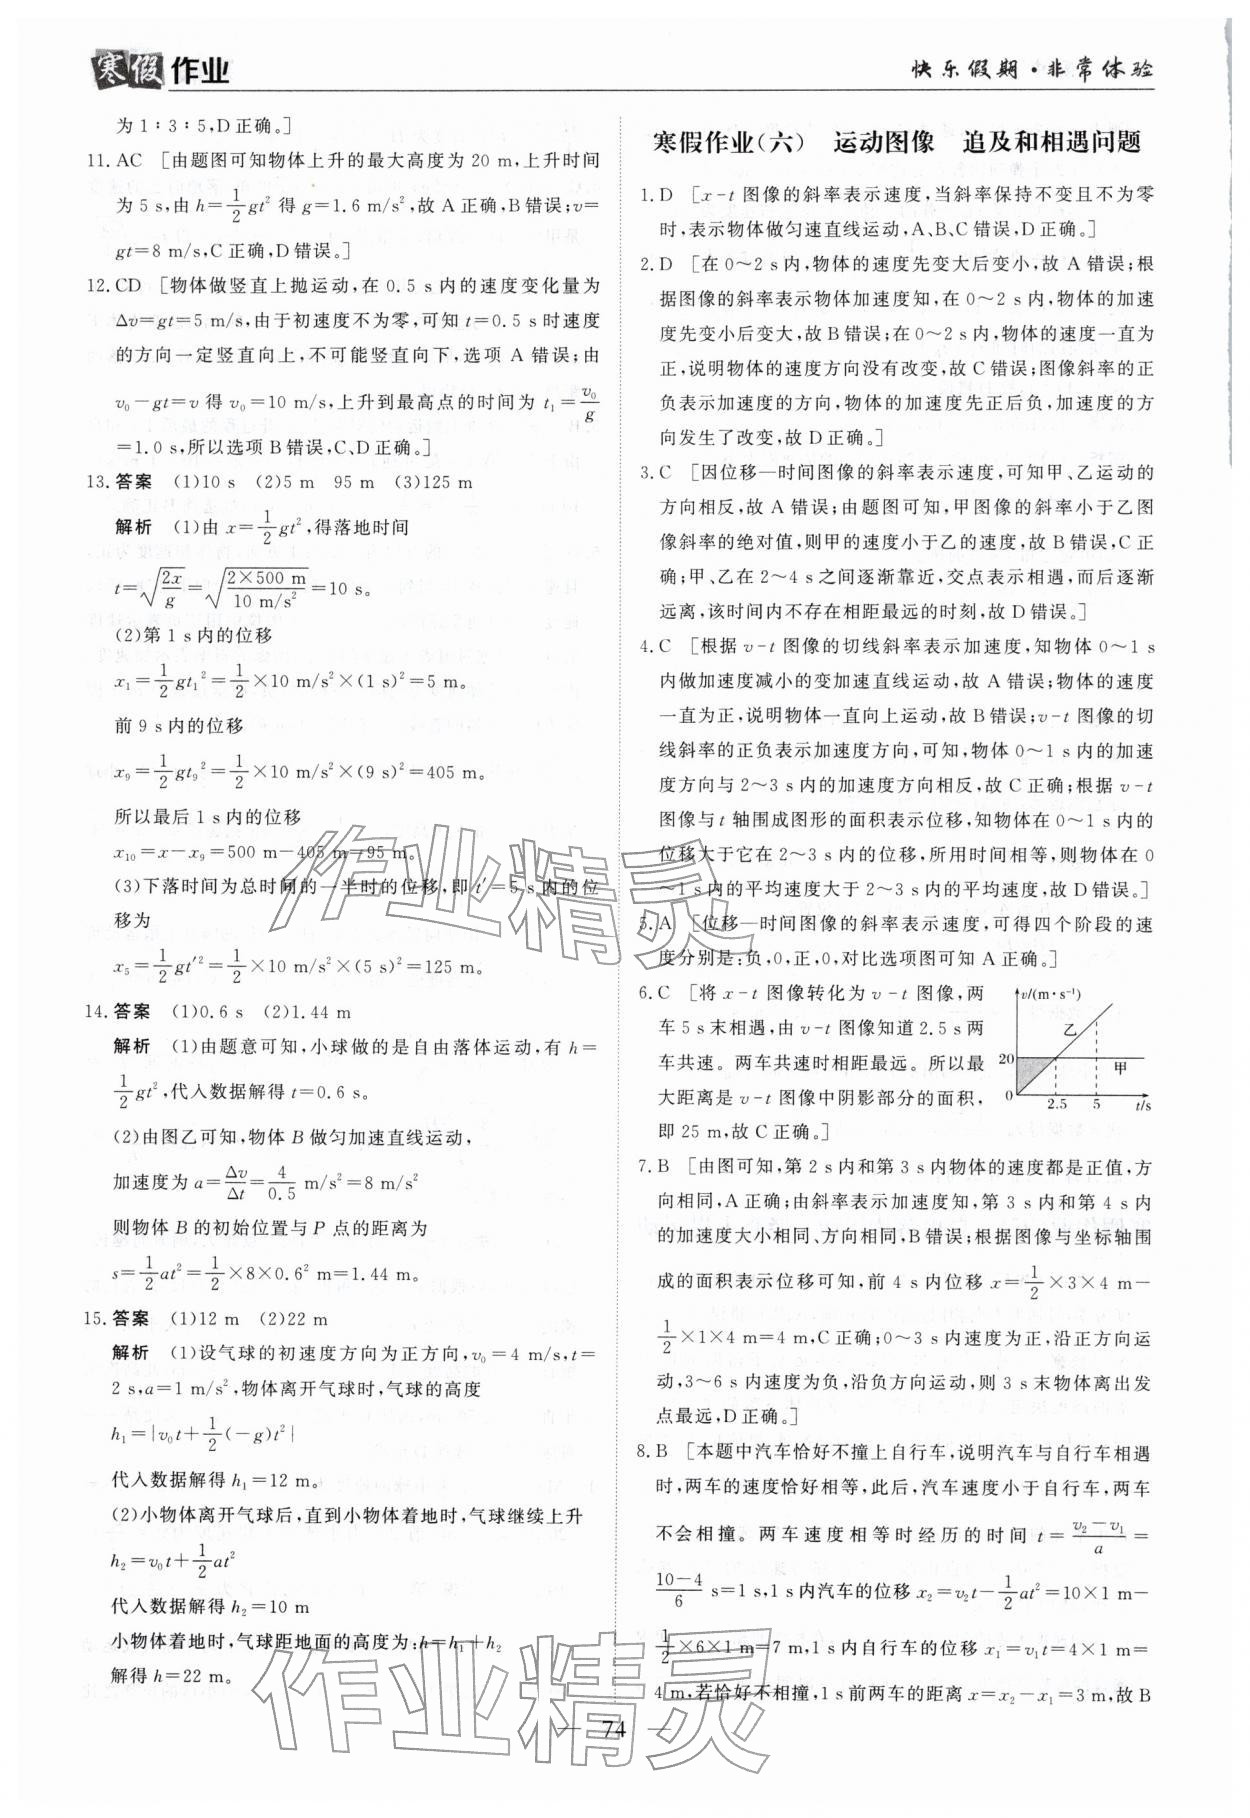 寒假作业
快乐假期·非常体验
为1∶3∶5,D正确。]
11. AC [由题图可知物体上升的最大高度为20 m,上升时间
为5 s,由h=1/2gt²得g=1.6 m/s²,故A正确,B错误;v=
gt=8 m/s,C正确,D错误。]
12. CD [物体做竖直上抛运动,在0.5 s内的速度变化量为
Δv=gt=5 m/s,由于初速度不为零,可知t=0.5 s时速度
的方向一定竖直向上,不可能竖直向下,选项A错误;由
v₀-gt=v得v₀=10 m/s,上升到最高点的时间为t₁=v₀/g
=1.0 s,所以选项B错误,C、D正确。]
13. 答案 (1)10 s (2)5 m 95 m (3)125 m
解析 (1)由x=1/2gt²,得落地时间
t=√(2x/g)=√(2×500 m/10 m/s²)=10 s。
(2)第1 s内的位移
x₁=1/2gt₁²=1/2×10 m/s²×(1 s)²=5 m。
前9 s内的位移
x₉=1/2gt₉²=1/2×10 m/s²×(9 s)²=405 m。
所以最后1 s内的位移
x₁₀=x-x₉=500 m-405 m=95 m。
(3)下落时间为总时间的一半时的位移,即t′=5 s内的位
移为
x₅=1/2gt′²=1/2×10 m/s²×(5 s)²=125 m。
14. 答案 (1)0.6 s (2)1.44 m
解析 (1)由题意可知,小球做的是自由落体运动,有h=
1/2gt²,代入数据解得t=0.6 s。
(2)由图乙可知,物体B做匀加速直线运动,
加速度为a=Δv/Δt=4/0.5 m/s²=8 m/s²
则物体B的初始位置与P点的距离为
s=1/2at²=1/2×8×0.6² m=1.44 m。
15. 答案 (1)12 m (2)22 m
解析 (1)设气球的初速度方向为正方向,v₀=4 m/s,t=
2 s,a=1 m/s²,物体离开气球时,气球的高度
h₁=|v₀t+1/2(-g)t²|
代入数据解得h₁=12 m。
(2)小物体离开气球后,直到小物体着地时,气球继续上升
h₂=v₀t+1/2at²
代入数据解得h₂=10 m
小物体着地时,气球距地面的高度为:h=h₁+h₂
解得h=22 m。
寒假作业(六) 运动图像 追及和相遇问题
1. D [x-t图像的斜率表示速度,当斜率保持不变且不为零
时,表示物体做匀速直线运动,A、B、C错误,D正确。]
2. D [在0～2 s内,物体的速度先变大后变小,故A错误;根
据图像的斜率表示物体加速度知,在0～2 s内,物体的加速
度先变小后变大,故B错误;在0～2 s内,物体的速度一直为
正,说明物体的速度方向没有改变,故C错误;图像斜率的正
负表示加速度的方向,物体的加速度先正后负,加速度的方
向发生了改变,故D正确。]
3. C [因位移—时间图像的斜率表示速度,可知甲、乙运动的
方向相反,故A错误;由题图可知,甲图像的斜率小于乙图
像斜率的绝对值,则甲的速度小于乙的速度,故B错误,C正
确;甲、乙在2～4 s之间逐渐靠近,交点表示相遇,而后逐渐
远离,该时间内不存在相距最远的时刻,故D错误。]
4. C [根据v-t图像的切线斜率表示加速度,知物体0～1 s
内做加速度减小的变加速直线运动,故A错误;物体的速度
一直为正,说明物体一直向上运动,故B错误;v-t图像的切
线斜率的正负表示加速度方向,可知,物体0～1 s内的加速
度方向与2～3 s内的加速度方向相反,故C正确;根据v-t
图像与t轴围成图形的面积表示位移,知物体在0～1 s内的
位移大于它在2～3 s内的位移,所用时间相等,则物体在0
～1 s内的平均速度大于2～3 s内的平均速度,故D错误。]
5. A [位移—时间图像的斜率表示速度,可得四个阶段的速
度分别是:负,0,正,0,对比选项图可知A正确。]
6. C [将x-t图像转化为v-t图像,两
车5 s末相遇,由v-t图像知道2.5 s两
车共速。两车共速时相距最远。所以最
大距离是v-t图像中阴影部分的面积,
即25 m,故C正确。]
v/(m·s⁻¹)
乙
20
甲
0 2.5 5 t/s
7. B [由图可知,第2 s内和第3 s内物体的速度都是正值,方
向相同,A正确;由斜率表示加速度知,第3 s内和第4 s内
的加速度大小相同、方向相同,B错误;根据图像与坐标轴围
成的面积表示位移可知,前4 s内位移x=1/2×3×4 m-
1/2×1×4 m=4 m,C正确;0～3 s内速度为正,沿正方向运
动,3～6 s内速度为负,沿负方向运动,则3 s末物体离出发
点最远,D正确。]
8. B [本题中汽车恰好不撞上自行车,说明汽车与自行车相遇
时,两车的速度恰好相等,此后,汽车速度小于自行车,两车
不会相撞。两车速度相等时经历的时间t=(v₂-v₁)/a=
(10-4)/6 s=1 s,1 s内汽车的位移x₂=v₂t-1/2at²=10×1 m-
1/2×6×1 m=7 m,1 s内自行车的位移x₁=v₁t=4×1 m=
4 m,若恰好不相撞,1 s前两车的距离x=x₂-x₁=3 m,故B
— 74 —
作业精灵
作业精灵